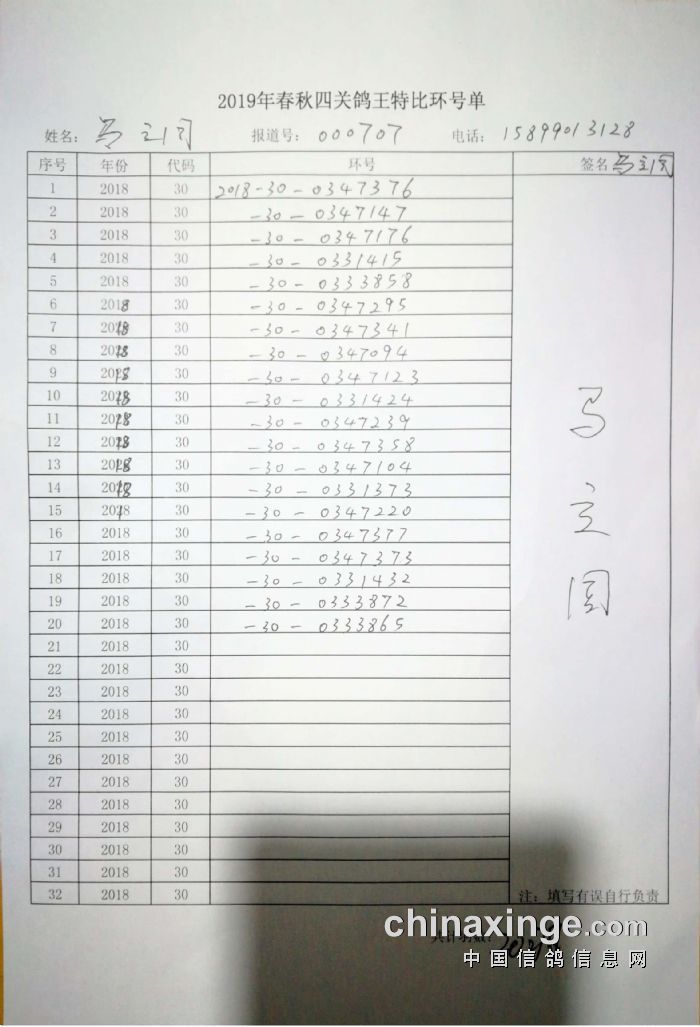 2019年春秋四关鸽王特比环号单
姓名: 马立国 报道号: 000707 电话: 15899013128
序号 年份 代码 环号 签名 马立国
1 2018 30 2018-30-0347376
2 2018 30 -30-0347147
3 2018 30 -30-0347176
4 2018 30 -30-0331415
5 2018 30 -30-0333858
6 2018 30 -30-0347295
7 2018 30 -30-0347341
8 2018 30 -30-0347094
9 2018 30 -30-0347123
10 2018 30 -30-0331424
11 2018 30 -30-0347239
12 2018 30 -30-0347358
13 2018 30 -30-0347104
14 2018 30 -30-0331373
15 2018 30 -30-0347220
16 2018 30 -30-0347377
17 2018 30 -30-0347373
18 2018 30 -30-0331432
19 2018 30 -30-0333872
20 2018 30 -30-0333865
马立国
21 2018 30
22 2018 30
23 2018 30
24 2018 30
25 2018 30
26 2018 30
27 2018 30
28 2018 30
29 2018 30
30 2018 30
31 2018 30
32 2018 30 注: 填写有误自行负责
chinaxinge.com
中国信鸽信息网